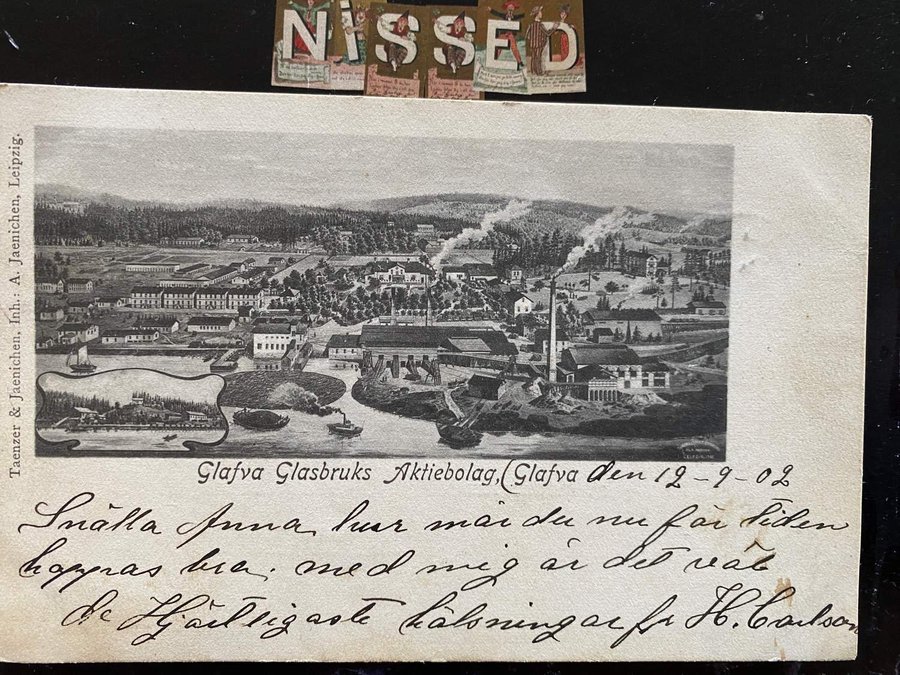 NiSSED
Taenzer & Jaenichen, Inh.: A. Jaenichen, Leipzig.
Glafva Glasbruks Aktiebolag, (Glafva den 12-9-02
Snälla Anna hur mår du nu för tiden
hoppas bra, med mig är det väl
de Hjärtligaste hälsningar fr H. Carlson